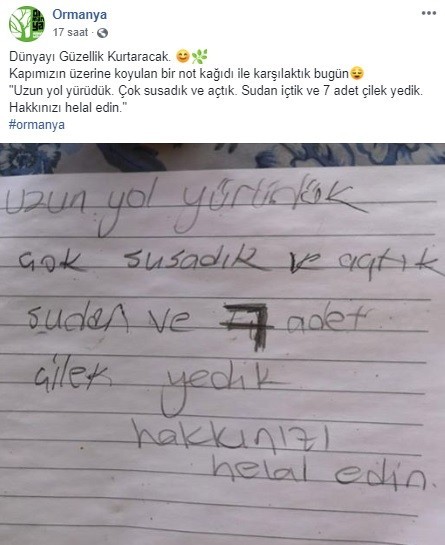 Ormanya
17 saat ·
Dünyayı Güzellik Kurtaracak. 😊🌿
Kapımızın üzerine koyulan bir not kağıdı ile karşılaktık bugün😌
"Uzun yol yürüdük. Çok susadık ve açtık. Sudan içtik ve 7 adet çilek yedik.
Hakkınızı helal edin."
#ormanya
uzun yol yürüdük
çok susadık ve açtık
sudan ve 7 adet
çilek yedik
hakkınızı
helal edin.